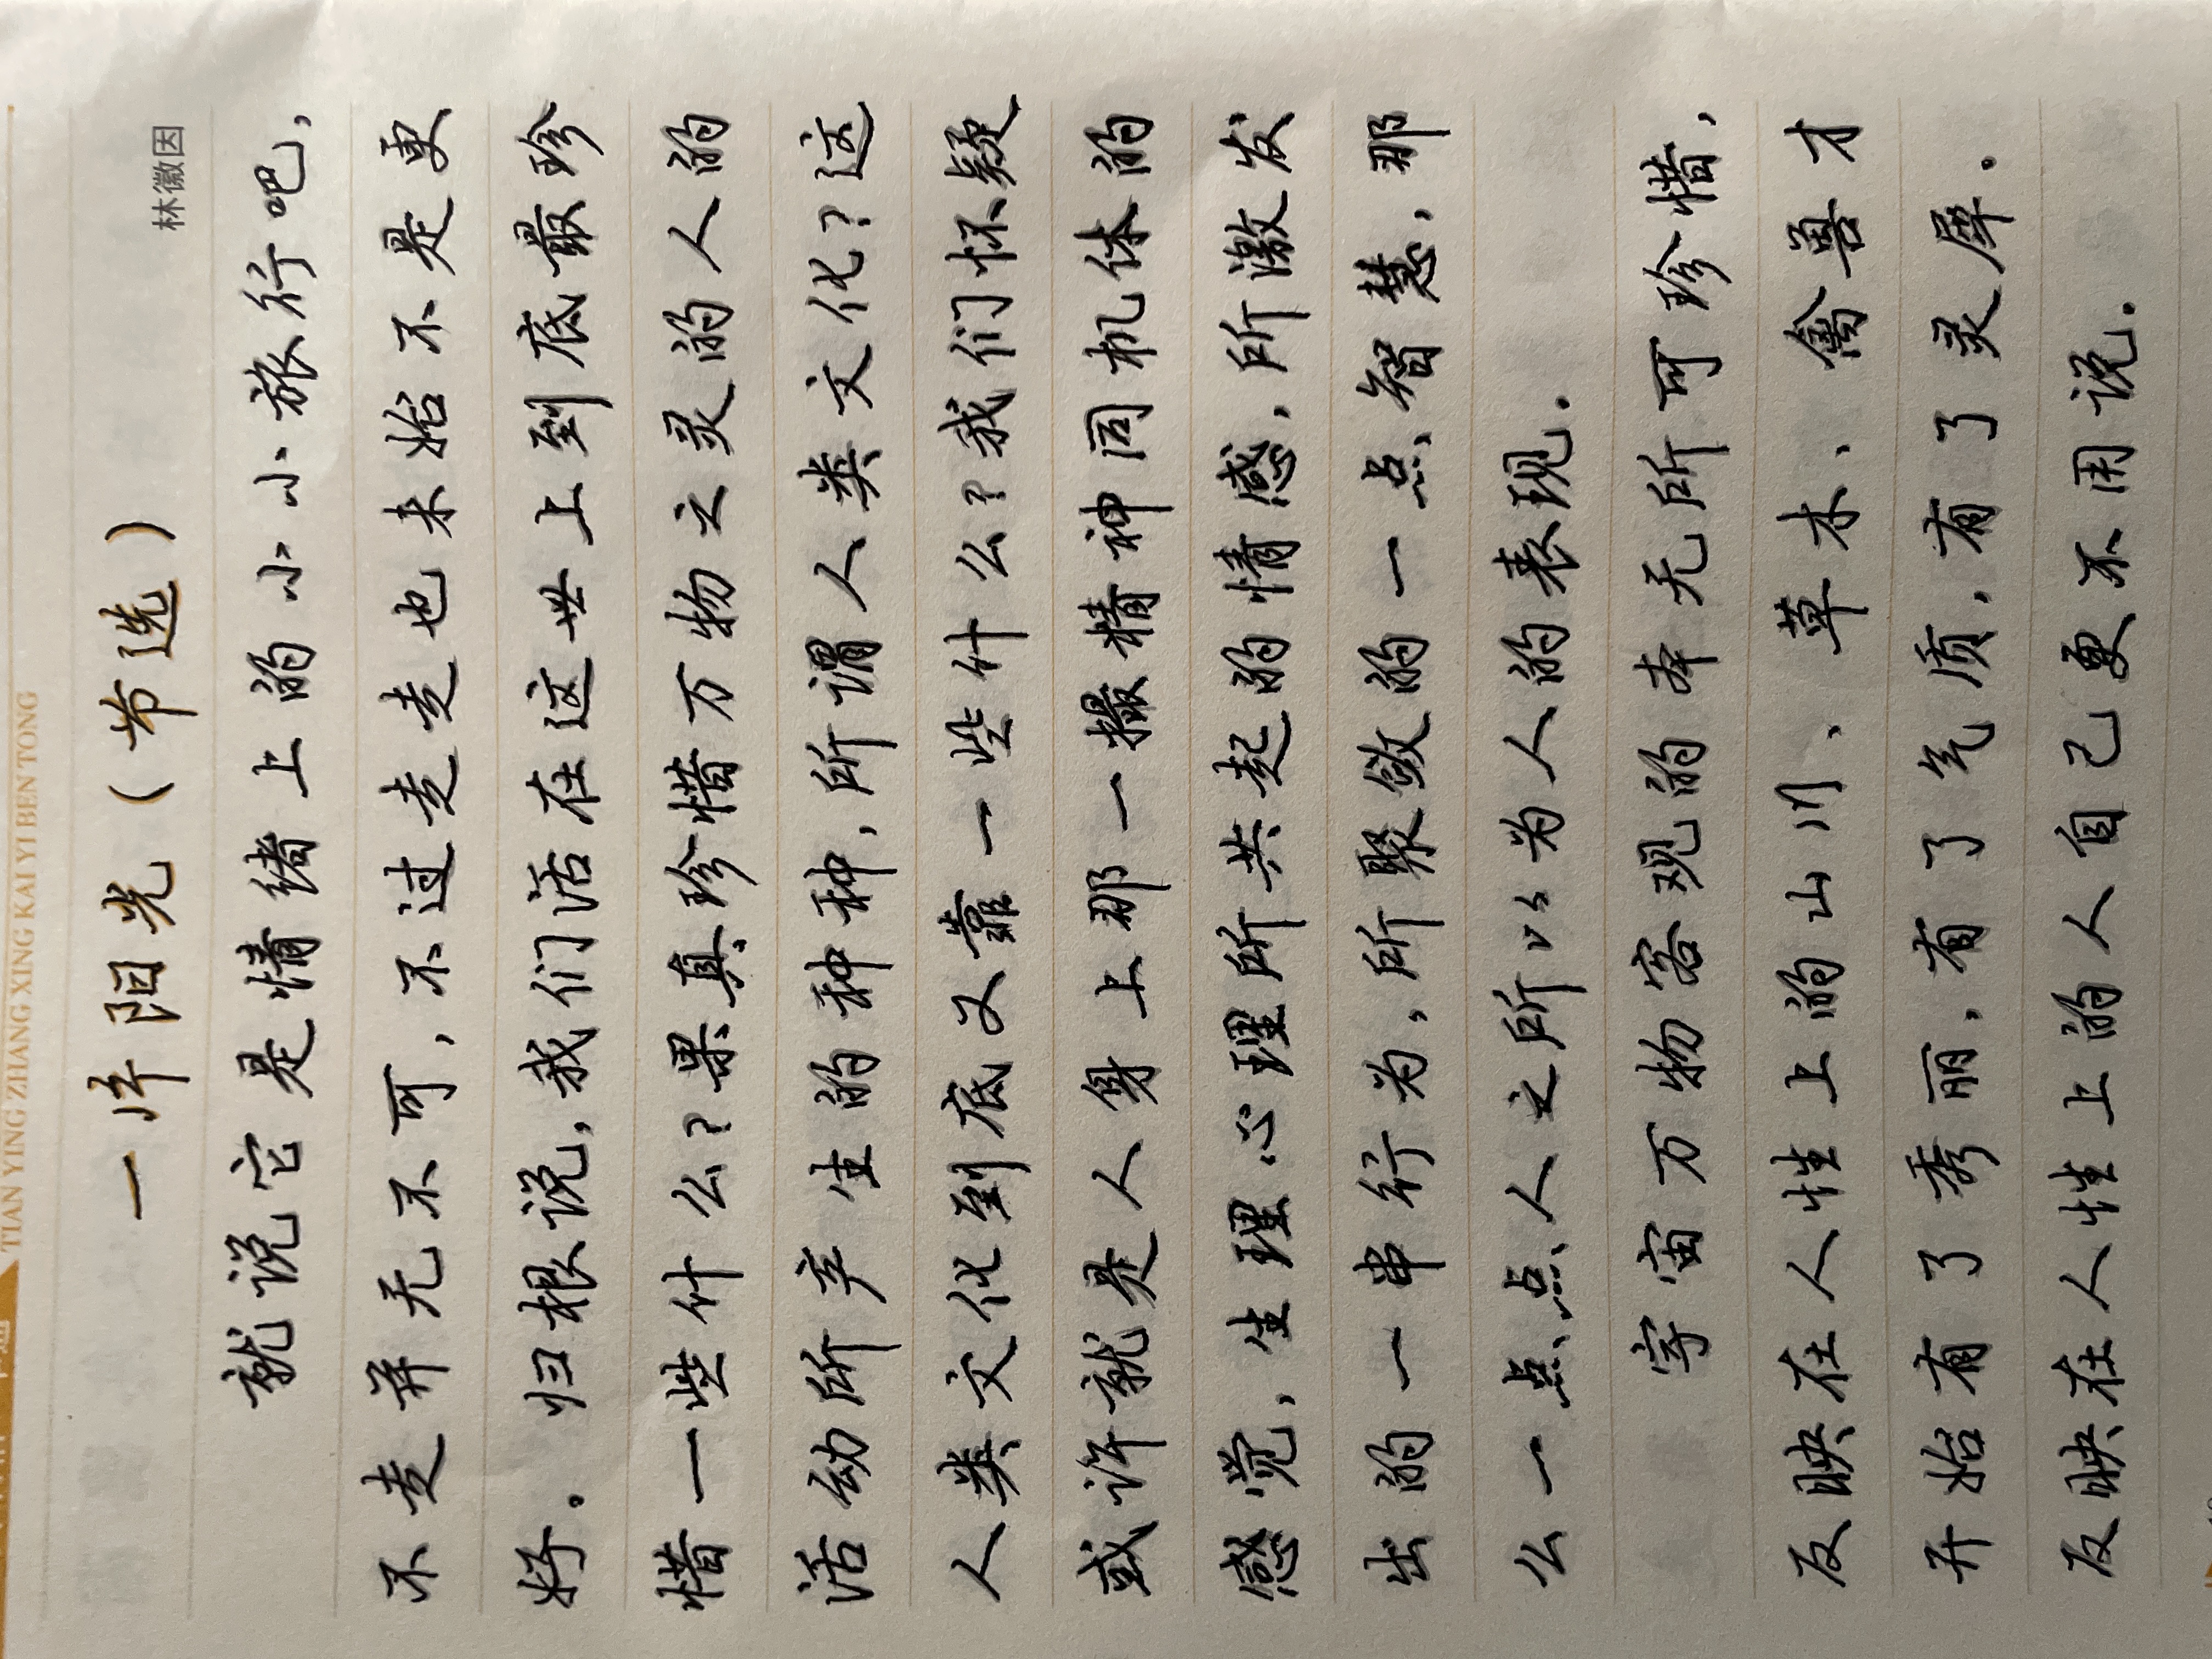 TIAN YING ZHANG XING KAI YI BEN TONG
一片阳光（节选）
林徽因
就说它是情绪上的小小旅行吧，
不走并无不可，不过走走也未始不是更
好。归根说，我们活在这世上到底最珍
惜一些什么？果真珍惜万物之灵的人的
活动所产生的种种，所谓人类文化？这
人类文化到底又靠一些什么？我们怀疑
或许就是人身上那一撮精神同机体的
感觉，生理心理所共起的情感，所激发
出的一串行为，所聚敛的一点智慧，那
么一点点人之所以为人的表现。
宇宙万物客观的本无所可珍惜，
反映在人性上的山川、草木、禽兽才
开始有了秀丽，有了气质，有了灵犀。
反映在人性上的人自己更不用说。